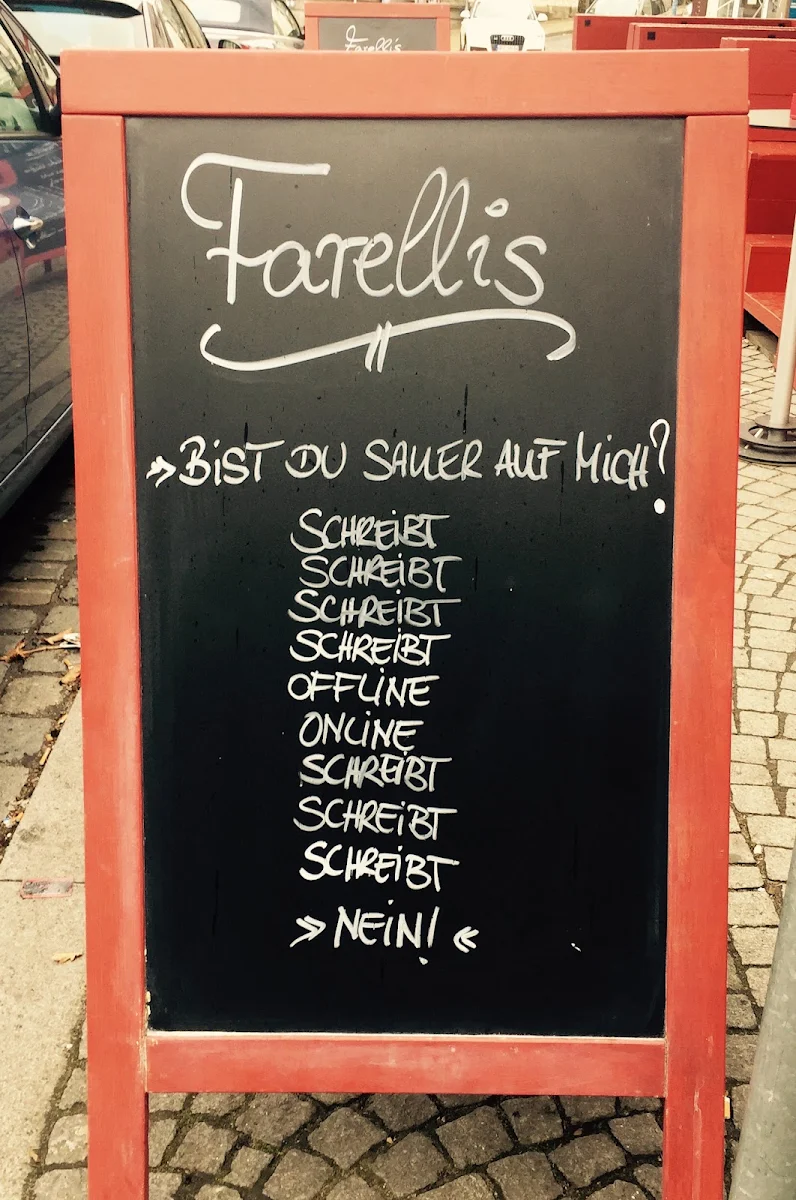 Farellis
Farellis
»BIST DU SAUER AUF MICH?
SCHREIBT
SCHREIBT
SCHREIBT
SCHREIBT
OFFLINE
ONLINE
SCHREIBT
SCHREIBT
SCHREIBT
» NEIN! «